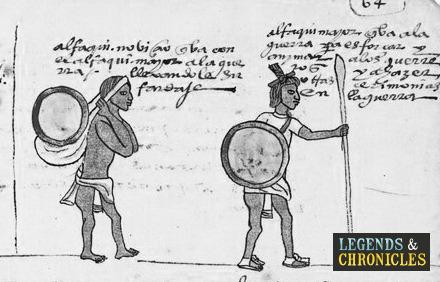 64
alfaqui. nobiçio q va con
el alfaqui mayor a la gue
rra. llevandole su
fardaje
alfaqui mayor q va a la
guerra pa esforçar y
animar a los guerre
ros y a hazer
otras çerimonias
en la guerra
LEGENDS &
CHRONICLES